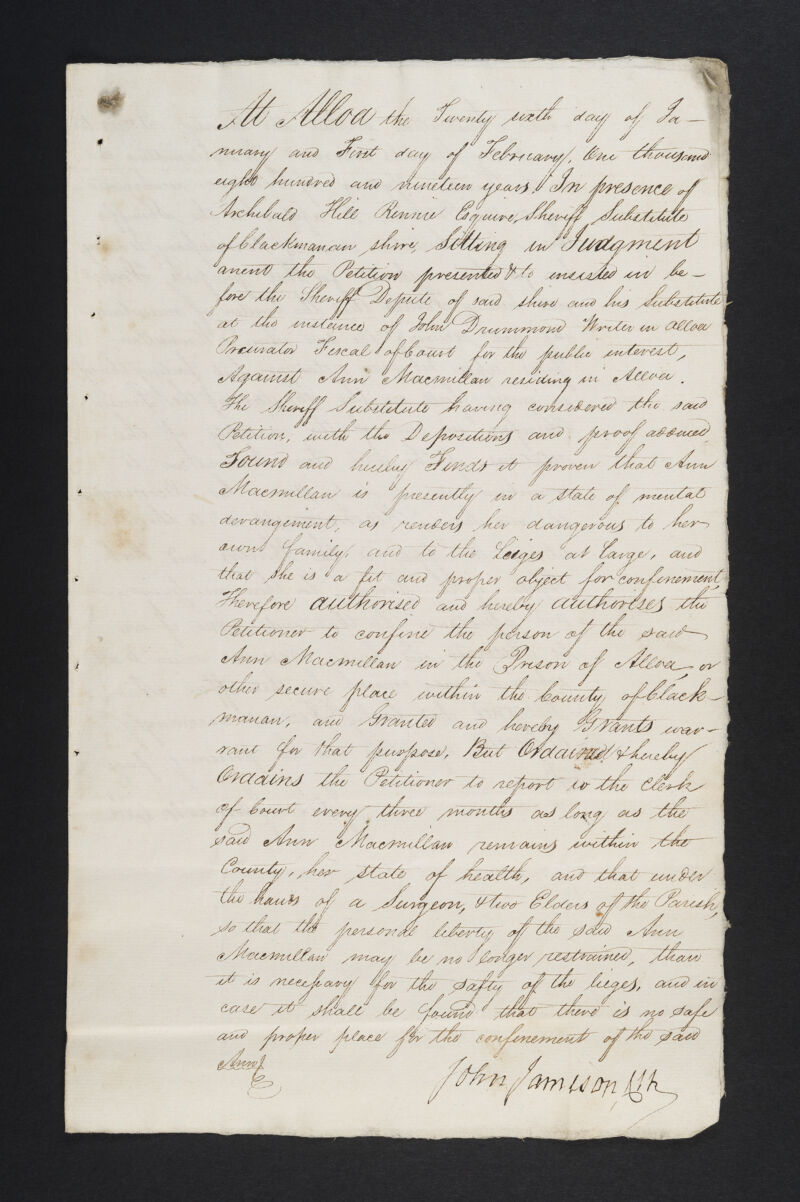 At Alloa the Twenty sixth day of Ja–
nuary and First day of February, One thousand
eight hundred and nineteen years. In presence of
Archibald Hill Rennie Esquire, Sheriff Substitute
of Clackmanan shire, Sitting in Judgment
anent the Petition presented & to insisted in be–
fore the Sheriff Depute of said shire and his Substitute
at the instance of John Drummond Writer in Alloa
Procurator Fiscal of Court for the public interest,
Against Ann Macmillan residing in Alloa.
The Sheriff Substitute having considered the said
Petition, with the Depositions and proof adduced
Found and hereby Finds it proven that Ann
Macmillan is presently in a state of mental
derangement, as renders her dangerous to her
own family, and to the Leiges at large, and
that she is a fit and proper object for confinement,
Therefore authorised and hereby authorises the
Petitioner to confine the person of the said
Ann Macmillan in the Prison of Alloa, or
other secure place within the County of Clack–
manan, and Granted and hereby Grants war–
rant for that purpose. But Ordained & hereby
Ordains the Petitioner to report to the Clerk
of Court every three months as long as the
said Ann Macmillan remains within the
County, her state of health, and that under
the hands of a Surgeon, & two Elders of the Parish,
so that the personal liberty of the said Ann
Macmillan may be no longer restrained, than
it is necessary for the safty of the lieges, and in
case it shall be found that there is no safe
and proper place for the confinement of the said
Ann
John Jameson, Clk